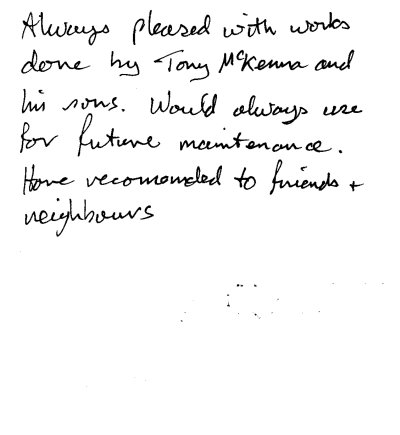 Always pleased with works
done by Tony McKenna and
his sons. Would always use
for future maintenance.
Have recomended to friends +
neighbours